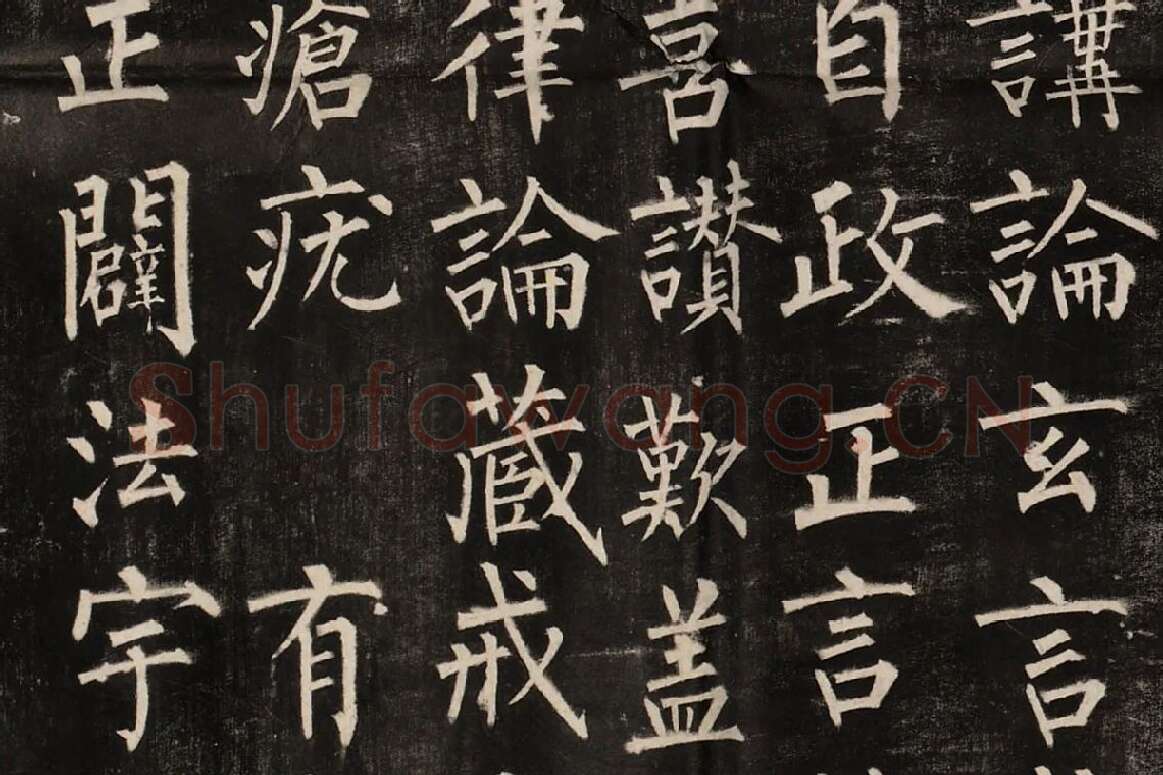 講論玄言
自政正言
喜讃歎盖
律論藏戒
瘡疣有
正闢法宇
Shufawang.CN